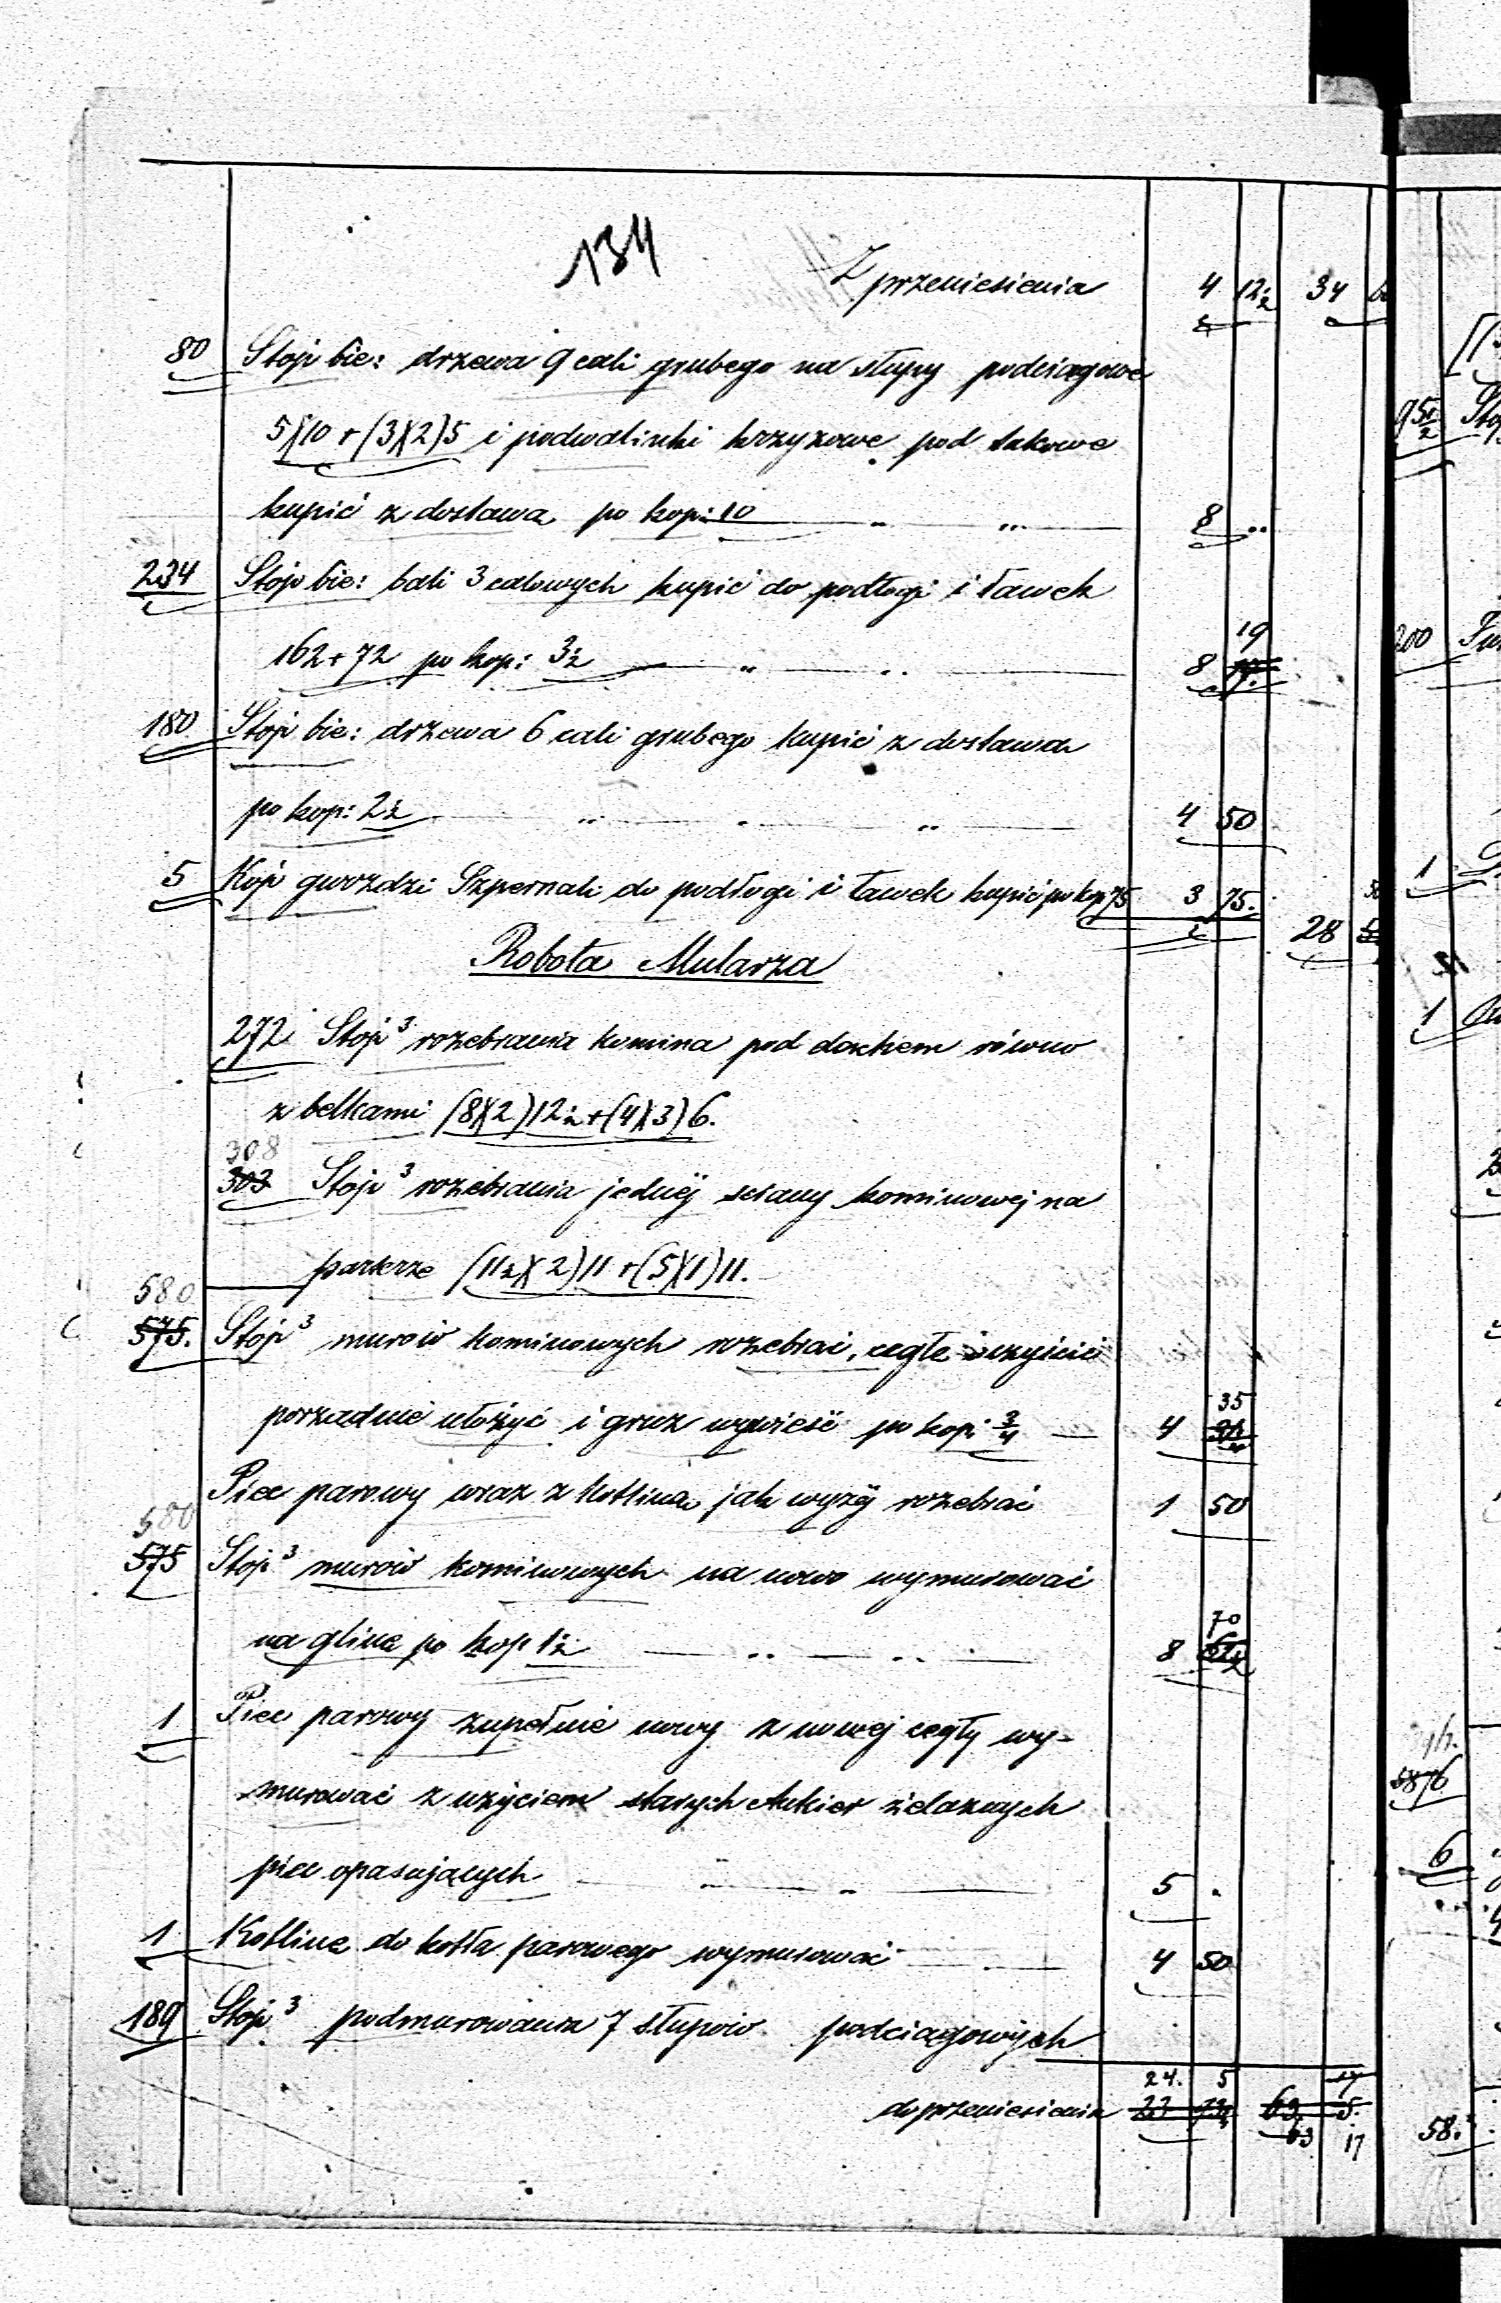 134
Z przeniesienia 4 12½ 34
80 Stóp bie: drzewa 9 cali grubego na słupy podciągowe
5)(10 + (3)(2)5 i podwalinki krzyżowe pod takowe
kupić z dostawą po kop: 10 „ „ 8 „
234 Stóp bie: bali 3 calowych kupić do podłogi i ławek
162+72 po kop: 3½ „ „ 8 19
180 Stóp bie: drzewa 6 cali grubego kupić z dostawą
po kop: 2½ „ „ „ 4 50
5 Kóp gwozdzi Szpernali do podłogi i ławek kupić po kop 75 3 75. 28
Robota Mularza
272 Stóp³ rozebrania komina pod dachem równo
z belkami (8)(2)12½+(4)(3)6.
308
303 Stóp³ rozebrania jednej sciany kominowej na
parterze (11½)(2)11+(5)(1)11.
580
575. Stóp³ murów kominowych rozebrać, cegłe oczyścić
porządnie ułożyć i gruz wywieść po kop: ¾ 4 35
Piec parowy wraz z kotliną jak wyżej rozebrać 1 50
580
575 Stóp³ murów kominowych na nowo wymurować
na glinę po kop 1½ „ „ 8 70
1 Piec parowy zupełnie nowy z nowej cegły wy=
murować z użyciem starych Ankier żelaznych
piec opasujących „ „ 5 „
1 Kotlinę do kotła parowego wymurować 4 50
189 Stóp³ podmurowania 7 słupów podciągowych
24. 5 17
do przeniesienia 23 63 5.
63 17
95½
200
1
1
5876
6
58.